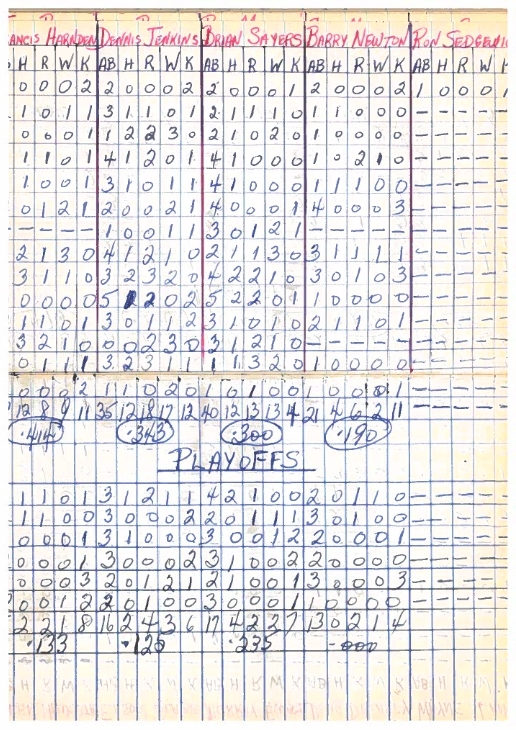 ANCIS HARNDEN DENNIS JENKINS BRIAN SAYERS BARRY NEWTON RON SEDGEWIC
H R W K AB H R W K AB H R W K AB H R W K AB H R W
0 0 0 2 2 0 0 0 2 2 0 0 0 1 2 0 0 0 2 1 0 0 0 1
1 0 1 1 3 1 1 0 1 2 1 1 1 0 1 1 0 0 0 - - - - -
0 0 0 1 1 2 2 3 0 2 1 0 2 0 1 0 0 0 0 - - - - -
1 1 0 1 4 1 2 0 1 4 1 0 0 0 1 0 2 1 0 - - - - -
1 0 0 1 3 1 0 1 1 4 1 0 0 0 1 1 1 0 0 - - - - -
0 1 2 1 2 0 0 2 1 4 0 0 0 1 4 0 0 0 3 - - - - -
- - - - 1 0 0 1 1 3 0 1 2 1 - - - - - - - - - -
2 1 3 0 4 1 2 1 0 2 1 1 3 0 3 1 1 1 1 - - - - -
3 1 1 0 3 2 3 2 0 4 2 2 1 0 3 0 1 0 3 - - - - -
0 0 0 0 5 1 2 0 2 5 2 2 0 1 1 0 0 0 0 - - - - -
1 1 0 1 3 0 1 1 2 3 1 0 1 0 2 1 1 0 1 - - - - -
3 2 1 0 0 0 2 3 0 3 1 2 1 0 - - - - - - - - - -
0 1 1 1 3 2 3 1 1 1 1 3 2 0 1 0 0 0 0 - - - - -
0 0 0 2 1 1 0 2 0 1 0 1 0 0 1 0 0 0 1 - - - - -
12 8 9 11 35 12 18 17 12 40 12 13 13 4 21 4 6 2 11
.414 .343 .300 .190
PLAYOFFS
1 1 0 1 3 1 2 1 1 4 2 1 0 0 2 0 1 1 0 - - - - -
1 1 0 0 3 0 0 0 2 2 0 1 1 1 3 0 1 0 0 - - - - -
0 0 0 1 3 1 0 0 0 3 0 0 1 2 2 0 0 0 1 - - - - -
0 0 0 1 3 0 0 0 2 3 1 0 0 2 2 0 0 0 0 - - - - -
0 0 0 3 2 0 1 2 1 2 1 0 0 1 3 0 0 0 3 - - - - -
0 0 1 2 2 0 1 0 0 3 0 0 0 1 1 0 0 0 0
2 2 1 8 16 2 4 3 6 17 4 2 2 7 13 0 2 1 4
.133 .125 .235 .000